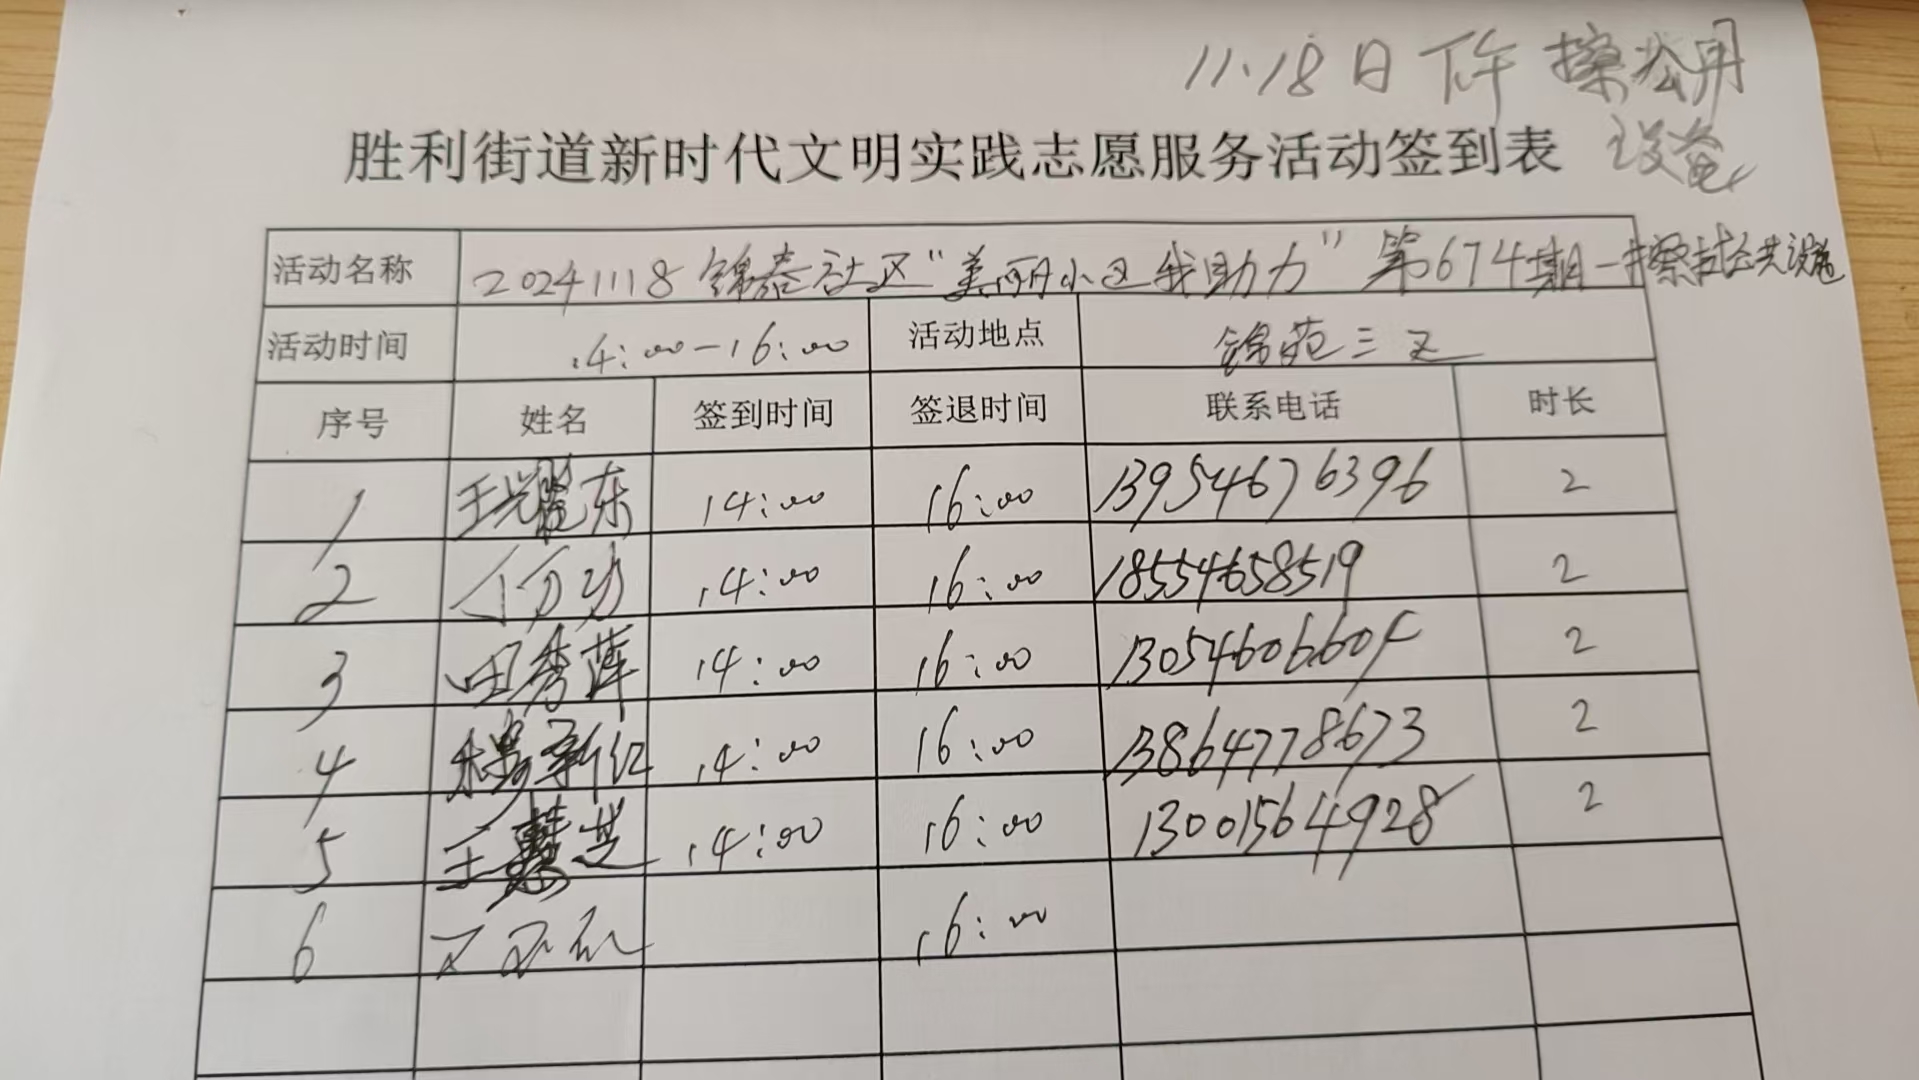 11.18日下午 擦公用
设备
胜利街道新时代文明实践志愿服务活动签到表
活动名称 20241118锦泰社区“美丽小区我助力”第674期—擦拭公共设施
活动时间 14:00-16:00 活动地点 锦苑三区
序号 姓名 签到时间 签退时间 联系电话 时长
1 王兴东 14:00 16:00 13954676396 2
2 14:00 16:00 18554658519 2
3 田秀萍 14:00 16:00 2
4 新红 14:00 16:00 13864778673 2
5 王慧芝 14:00 16:00 13001564928 2
6 16:00